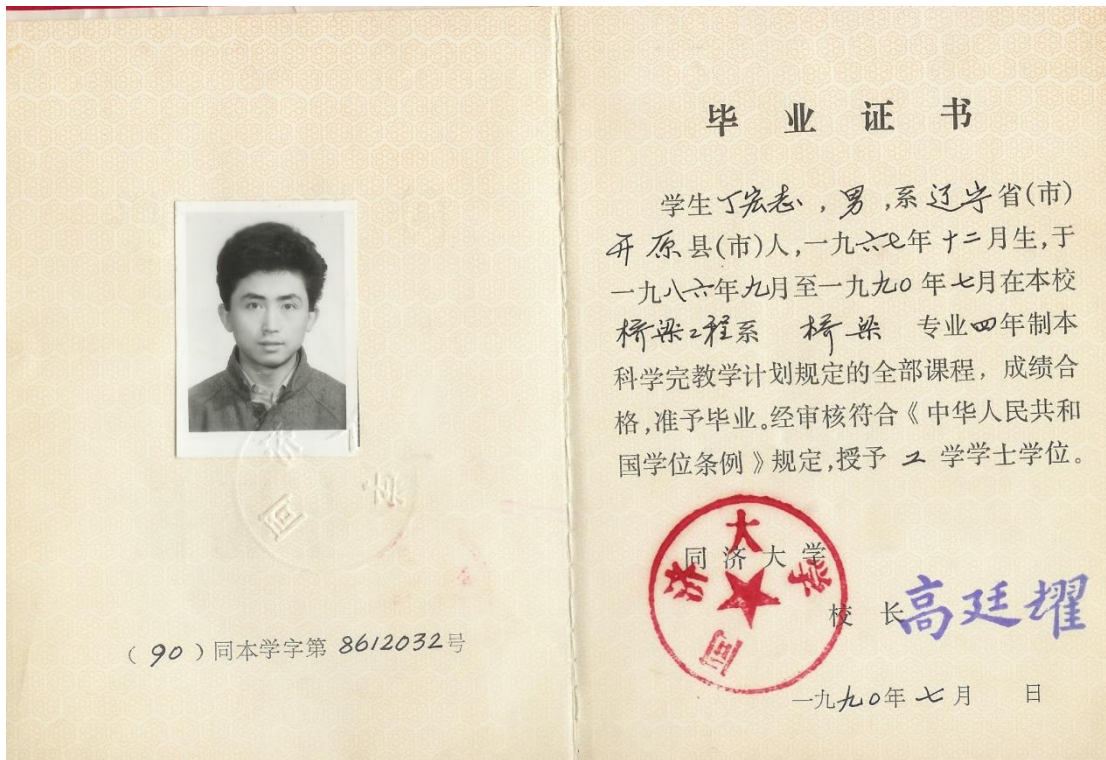 (90)同本学字第 8612032号
毕业证书
学生丁宏志,男,系辽宁省(市)
开原县(市)人,一九六七年十二月生,于
一九八六年九月至一九九0年七月在本校
桥梁工程系 桥梁 专业四年制本
科学完教学计划规定的全部课程,成绩合
格,准予毕业。经审核符合《中华人民共和
国学位条例》规定,授予 工 学学士学位。
同济大学
同济大学
校 长 高廷耀
一九九0年七月 日